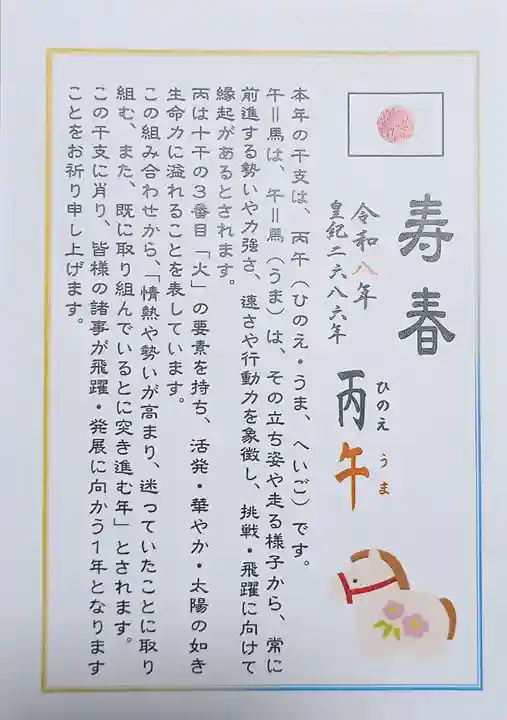 寿春
令和八年
皇紀二六八六年
ひのえ うま
丙午
本年の干支は、丙午（ひのえ・うま、へいご）です。
午＝馬は、午＝馬（うま）は、その立ち姿や走る様子から、常に
前進する勢いや力強さ、速さや行動力を象徴し、挑戦・飛躍に向けて
縁起があるとされます。
丙は十干の３番目「火」の要素を持ち、活発・華やか・太陽の如き
生命力に溢れることを表しています。
この組み合わせから、「情熱や勢いが高まり、迷っていたことに取り
組む、また、既に取り組んでいるとに突き進む年」とされます。
この干支に肖り、皆様の諸事が飛躍・発展に向かう１年となります
ことをお祈り申し上げます。